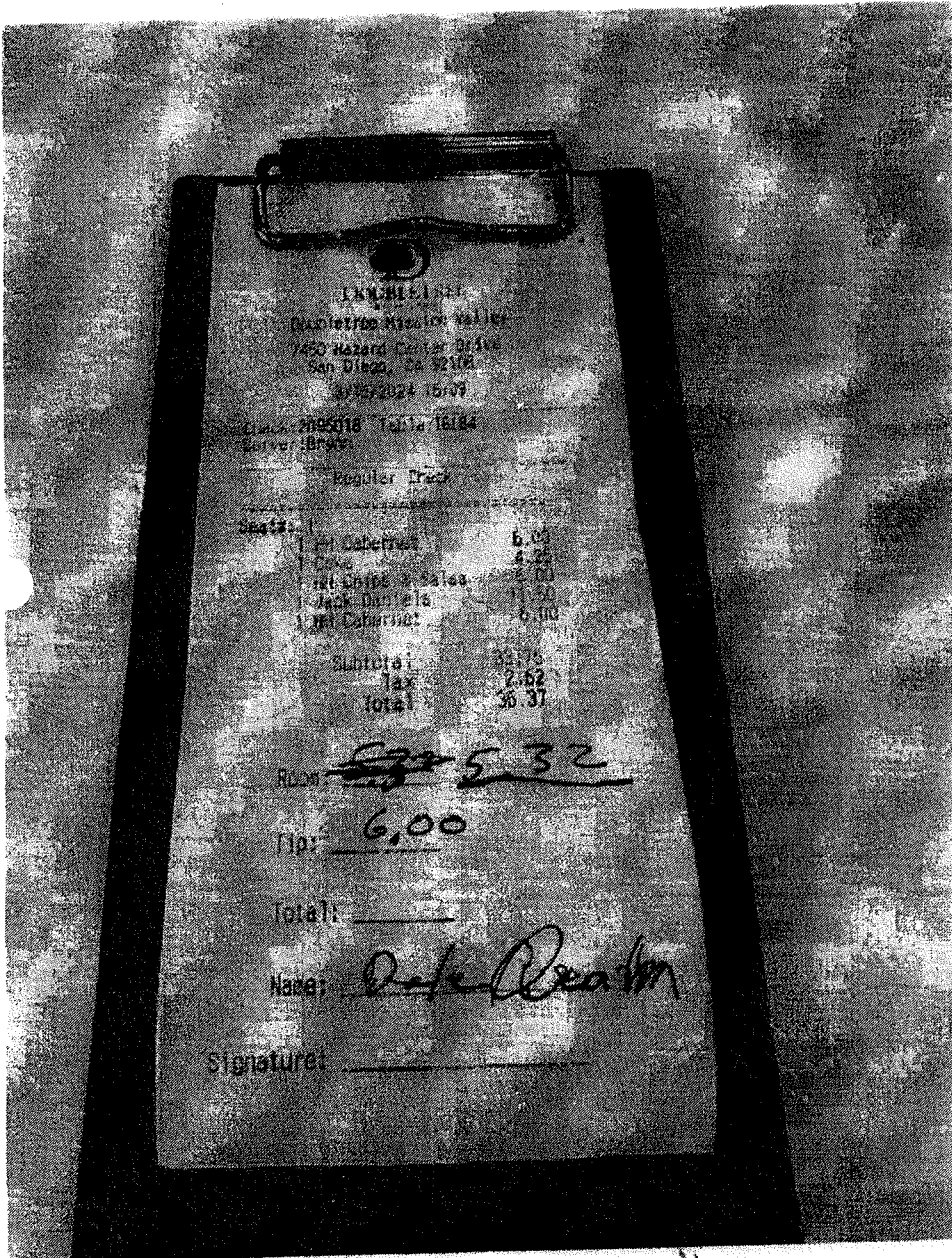 DOUBLETREE
Doubletree Mission Valley
7450 Hazard Center Drive
San Diego, CA 92108
2024 16:09
Check:2095018 Table:16184
Server:
Regular Check
Seats: 1
1 HH Cabernet 6.00
1 Coke 4.25
1 HH Chips & Salsa 6.00
1 Jack Daniels 11.50
1 HH Cabernet 6.00
Subtotal 33.75
Tax 2.62
Total 36.37
Room: 532
Tip: 6.00
Total:
Name:
Signature: